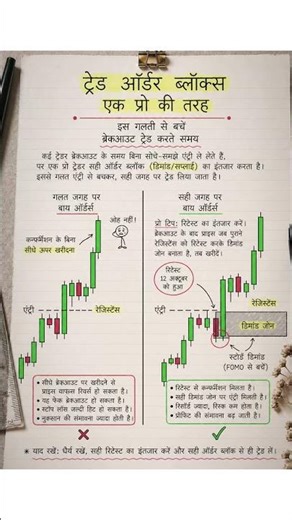 ट्रेड ऑर्डर ब्लॉक्स
एक प्रो की तरह
इस गलती से बचें
ब्रेकआउट ट्रेड करते समय
कई ट्रेडर ब्रेकआउट के समय बिना सोचे-समझे एंट्री ले लेते हैं,
पर एक प्रो ट्रेडर सही ऑर्डर ब्लॉक (डिमांड/सप्लाई) का इंतजार करता है।
इससे गलत एंट्री से बचकर, सही जगह पर ट्रेड लिया जाता है।
गलत जगह पर
बाय ऑर्डर्स
ओह नहीं!
कन्फर्मेशन के बिना
सीधे ऊपर खरीदना
एंट्री
रेजिस्टेंस
• सीधे ब्रेकआउट पर खरीदने से
प्राइस वापस रिवर्स हो सकता है।
• यह फेक ब्रेकआउट हो सकता है।
• स्टॉप लॉस जल्दी हिट हो सकता है।
• नुकसान की संभावना ज्यादा होती है।
सही जगह पर
बाय ऑर्डर्स
प्रो टिप: रिटेस्ट का इंतजार करें।
ब्रेकआउट के बाद प्राइस जब पुराने
रेजिस्टेंस को रिटेस्ट करके डिमांड
जोन बनाता है, तब खरीदें।
रिटेस्ट
12 अक्टूबर
को हुआ
रेजिस्टेंस
एंट्री
डिमांड जोन
स्टोर्ड डिमांड
(FOMO से बचें)
• रिटेस्ट से कन्फर्मेशन मिलता है।
• सही डिमांड जोन पर एंट्री मिलती है।
• रिवॉर्ड ज्यादा, रिस्क कम होता है।
• प्रॉफिट की संभावना बढ़ जाती है।
* याद रखें: धैर्य रखें, सही रिटेस्ट का इंतजार करें और सही ऑर्डर ब्लॉक से ही ट्रेड लें।